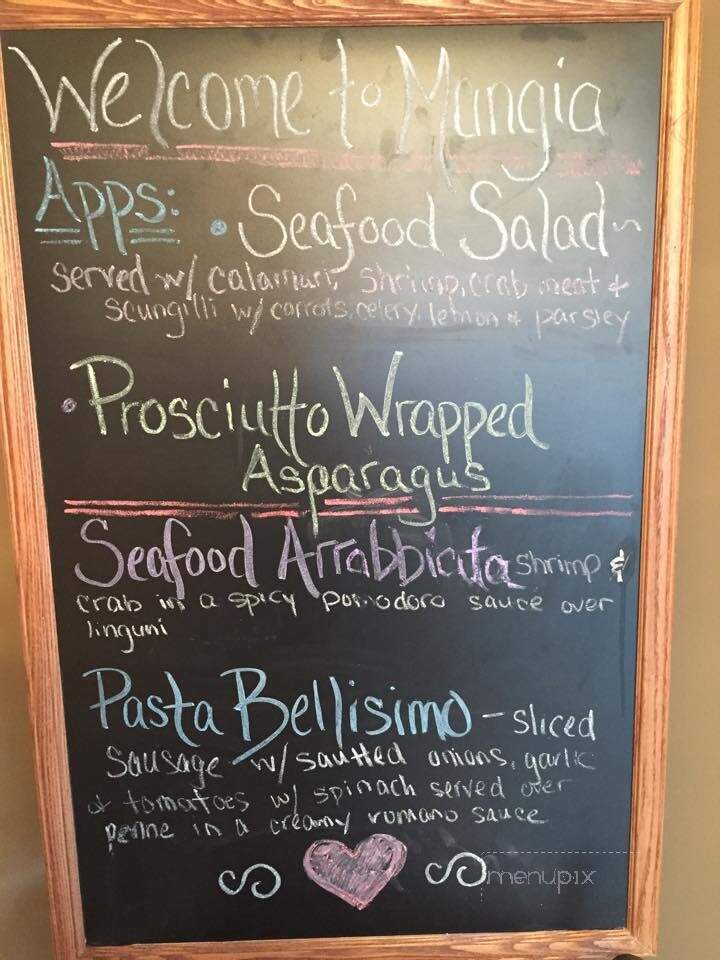 Welcome to Mangia
Apps: • Seafood Salad ~
served w/ calamari, shrimp, crab meat &
scungilli w/ carrots, celery, lemon & parsley
• Prosciutto Wrapped
Asparagus
Seafood Arrabbiata shrimp &
crab in a spicy pomodoro sauce over
linguni
Pasta Bellisimo - sliced
sausage w/ sautted onions, garlic
& tomatoes w/ spinach served over
penne in a creamy romano sauce
menupix